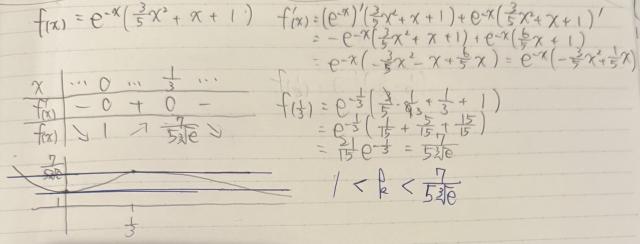 f(x) = e^{-x}(3/5 x² + x + 1)
f'(x) = (e^{-x})'(3/5 x² + x + 1) + e^{-x}(3/5 x² + x + 1)'
= -e^{-x}(3/5 x² + x + 1) + e^{-x}(6/5 x + 1)
= e^{-x}(-3/5 x² - x + 6/5 x) = e^{-x}(-3/5 x² + 1/5 x)
x ... 0 ... 1/3 ...
f'(x) - 0 + 0 -
f(x) ↘ 1 ↗ 7/(5∛e) ↘
f(1/3) = e^{-1/3}(3/5 · 1/9 + 1/3 + 1)
= e^{-1/3}(1/15 + 5/15 + 15/15)
= 21/15 e^{-1/3} = 7/(5∛e)
7/(5∛e)
1
1/3
1 < k < 7/(5∛e)